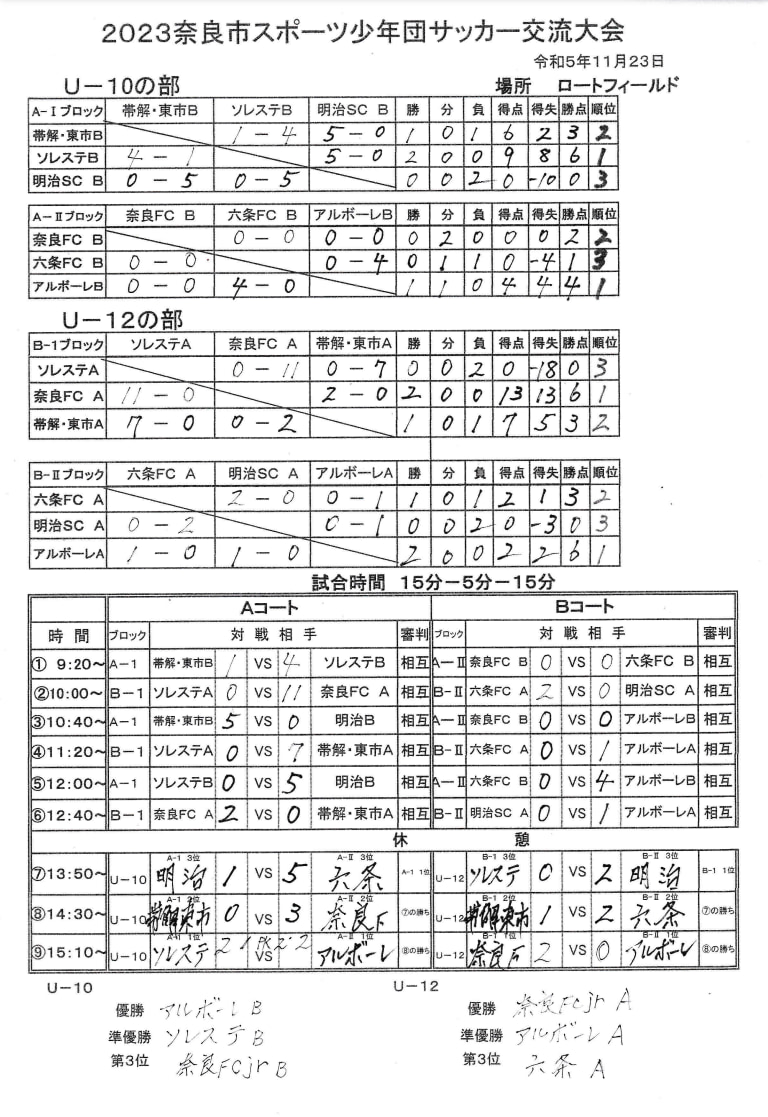 2023奈良市スポーツ少年団サッカー交流大会
令和5年11月23日
U－10の部 場所 ロートフィールド
A-Ⅰブロック 帯解・東市B ソレステB 明治SC B 勝 分 負 得点 得失 勝点 順位
帯解・東市B 1 － 4 5 － 0 1 0 1 6 2 3 2
ソレステB 4 － 1 5 － 0 2 0 0 9 8 6 1
明治SC B 0 － 5 0 － 5 0 0 2 0 -10 0 3
A－Ⅱブロック 奈良FC B 六条FC B アルボーレB 勝 分 負 得点 得失 勝点 順位
奈良FC B 0 － 0 0 － 0 0 2 0 0 0 2 2
六条FC B 0 － 0 0 － 4 0 1 1 0 -4 1 3
アルボーレB 0 － 0 4 － 0 1 1 0 4 4 4 1
U－12の部
B-1ブロック ソレステA 奈良FC A 帯解・東市A 勝 分 負 得点 得失 勝点 順位
ソレステA 0 － 11 0 － 7 0 0 2 0 -18 0 3
奈良FC A 11 － 0 2 － 0 2 0 0 13 13 6 1
帯解・東市A 7 － 0 0 － 2 1 0 1 7 5 3 2
B-Ⅱブロック 六条FC A 明治SC A アルボーレA 勝 分 負 得点 得失 勝点 順位
六条FC A 2 － 0 0 － 1 1 0 1 2 1 3 2
明治SC A 0 － 2 0 － 1 0 0 2 0 -3 0 3
アルボーレA 1 － 0 1 － 0 2 0 0 2 2 6 1
試合時間 15分－5分－15分
Aコート Bコート
時間 ブロック 対戦相手 審判 ブロック 対戦相手 審判
① 9:20～ A－1 帯解・東市B 1 VS 4 ソレステB 相互 A－Ⅱ 奈良FC B 0 VS 0 六条FC B 相互
②10:00～ B－1 ソレステA 0 VS 11 奈良FC A 相互 B－Ⅱ 六条FC A 2 VS 0 明治SC A 相互
③10:40～ A－1 帯解・東市B 5 VS 0 明治B 相互 A－Ⅱ 奈良FC B 0 VS 0 アルボーレB 相互
④11:20～ B－1 ソレステA 0 VS 7 帯解・東市A 相互 B－Ⅱ 六条FC A 0 VS 1 アルボーレA 相互
⑤12:00～ A－1 ソレステB 0 VS 5 明治B 相互 A－Ⅱ 六条FC B 0 VS 4 アルボーレB 相互
⑥12:40～ B－1 奈良FC A 2 VS 0 帯解・東市A 相互 B－Ⅱ 明治SC A 0 VS 1 アルボーレA 相互
休憩
A-1 3位 A-Ⅱ 3位 B-1 3位 B-Ⅱ 3位
⑦13:50～ U-10 明治 1 VS 5 六条 A-1 1位 U-12 ソレステ 0 VS 2 明治 B-1 1位
A-1 2位 A-Ⅱ 2位 B-1 2位 B-Ⅱ 2位
⑧14:30～ U-10 帯解東市 0 VS 3 奈良F ⑦の勝ち U-12 帯解東市 1 VS 2 六条 ⑦の勝ち
A-1 1位 A-Ⅱ 1位 B-1 1位 B-Ⅱ 1位
⑨15:10～ U-10 ソレステ 2 1 PK 2 2 VS アルボーレ ⑧の勝ち U-12 奈良F 2 VS 0 アルボーレ ⑧の勝ち
U－10 U－12
優勝 アルボーレ B 優勝 奈良FCjr A
準優勝 ソレステ B 準優勝 アルボーレ A
第3位 奈良FCjr B 第3位 六条 A